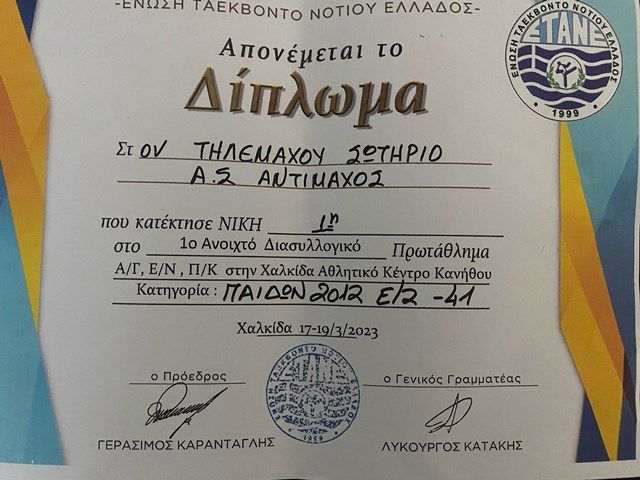 -ΕΝΩΣΗ ΤΑΕΚΒΟΝΤΟ ΝΟΤΙΟΥ ΕΛΛΑΔΟΣ-
ΕΝΩΣΗ ΤΑΕΚΒΟΝΤΟ ΝΟΤΙΟΥ ΕΛΛΑΔΟΣ
ΕΤΑΝΕ
• 1999 •
Απονέμεται το
Δίπλωμα
Στ ΟΝ ΤΗΛΕΜΑΧΟΥ ΣΩΤΗΡΙΟ
Α.Σ ΑΝΤΙΜΑΧΟΣ
που κατέκτησε ΝΙΚΗ 1η
στο 1ο Ανοιχτό Διασυλλογικό Πρωτάθλημα
Α/Γ, Ε/Ν , Π/Κ στην Χαλκίδα Αθλητικό Κέντρο Κανήθου
Κατηγορία : ΠΑΙΔΩΝ 2012 Ε/2 -41
Χαλκίδα 17-19/3/2023
ο Πρόεδρος
ο Γενικός Γραμματέας
ΓΕΡΑΣΙΜΟΣ ΚΑΡΑΝΤΑΓΛΗΣ
ΛΥΚΟΥΡΓΟΣ ΚΑΤΑΚΗΣ